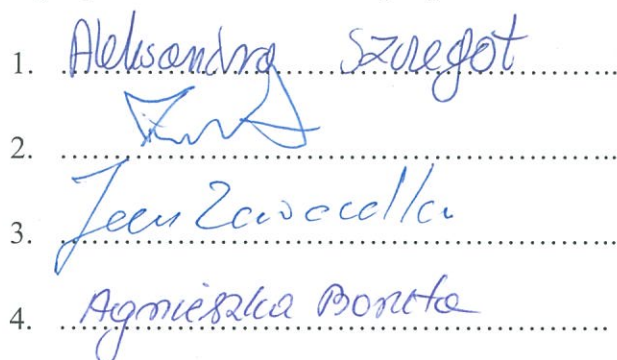 1. Aleksandra Szczegot
2.
3. Jan Zawadka
4. Agnieszka Boruta